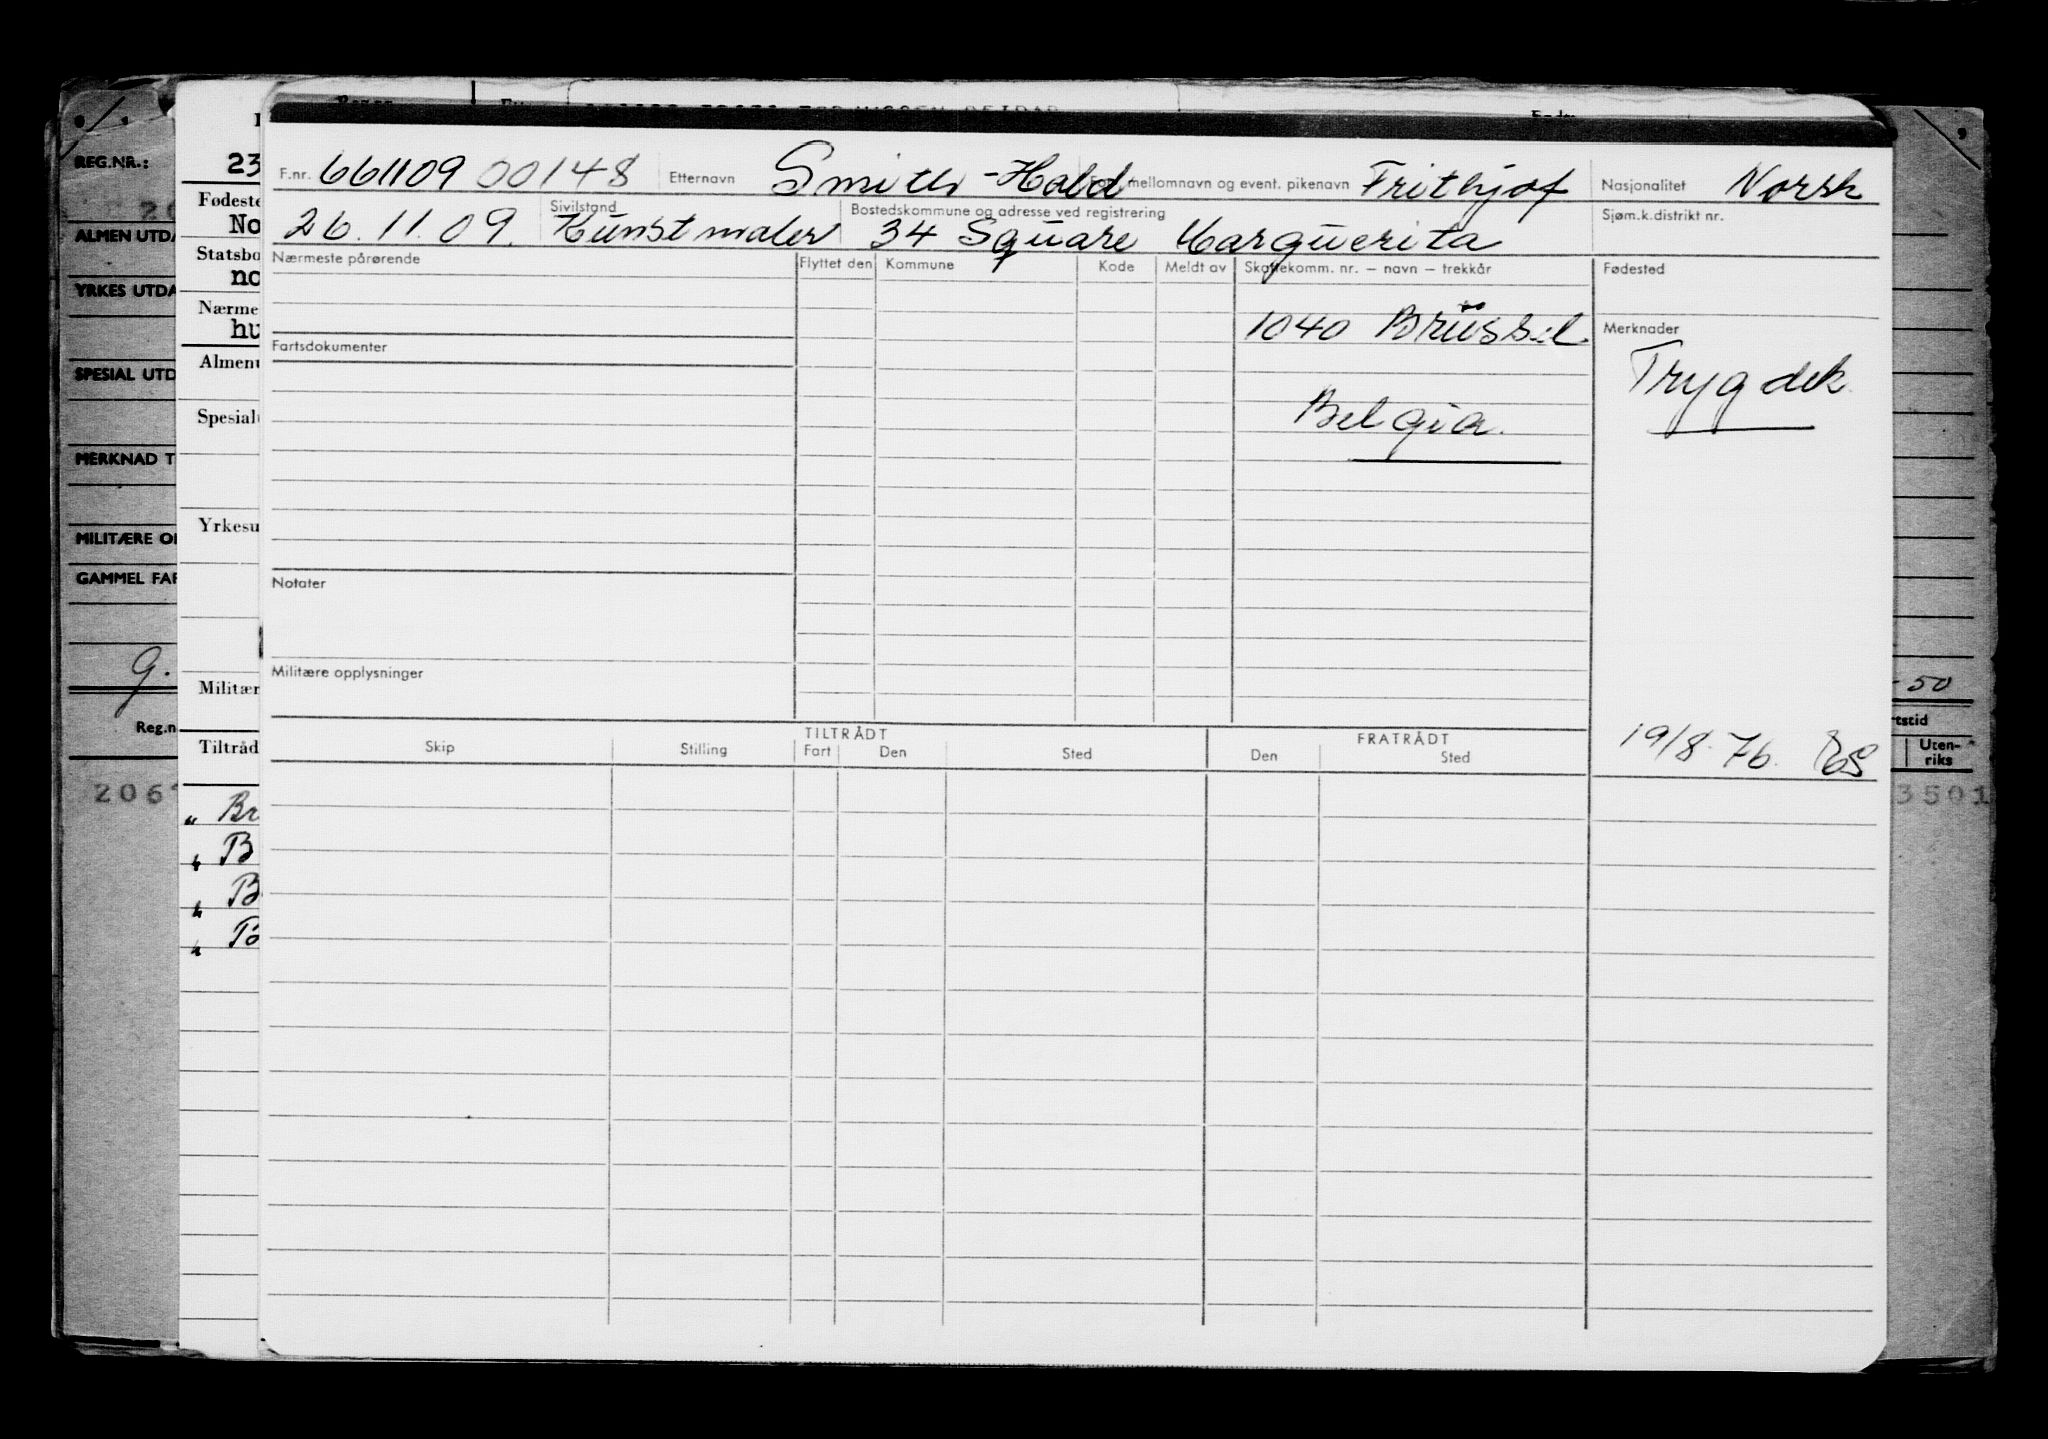 REG.NR.:
ALMEN UTDA
YRKES UTDA
SPESIAL UTD
MERKNAD T
MILITÆRE O
GAMMEL FAR
g.
Reg.n
206
23
Fødeste
No
Statsbo
no
Nærme
hu
Almen
Spesial
Yrkesu
Militær
Tiltråd
" Br
" B
" B
" B
F.nr. 661109 00148 Etternavn Smith-Hald For-, mellomnavn og event. pikenavn Frithjof Nasjonalitet Norsk
26.11.09. Sivilstand Kunstmaler Bostedskommune og adresse ved registrering 34 Square Marguerita Sjøm.k.distrikt nr.
Nærmeste pårørende Flyttet den Kommune Kode Meldt av Skattekomm. nr. – navn – trekkår Fødested
1040 Brüssel Merknader
Fartsdokumenter
Trygdek.
Belgia.
Notater
Militære opplysninger
19/8-76.
TILTRÅDT FRATRÅDT
Skip Stilling Fart Den Sted Den Sted
- 50
rtstid
Uten-
riks
3501